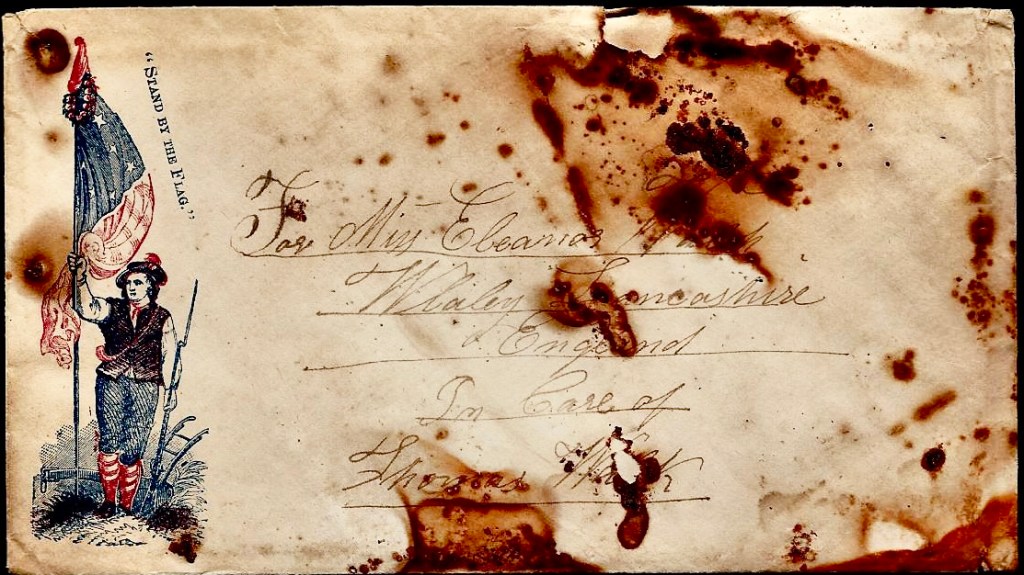 "STAND BY THE FLAG."
For Miss Eleanor
Whaley Lancashire
England
In Care of
Thomas